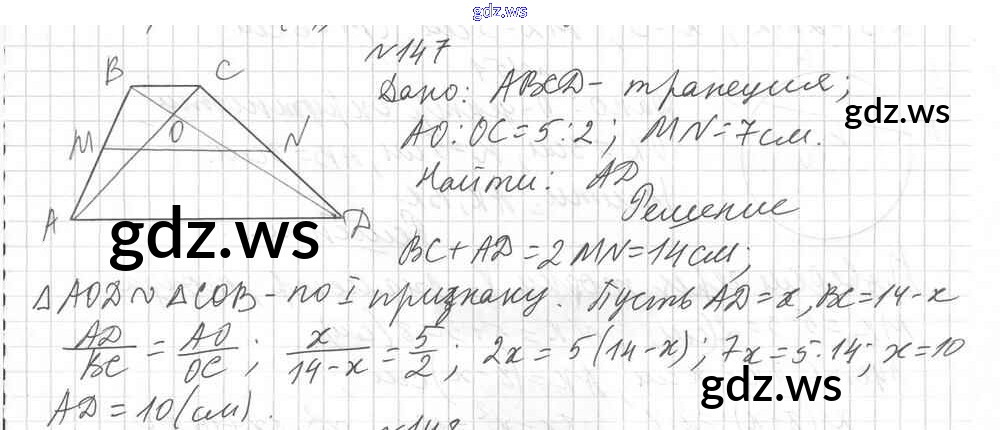 gdz.ws
№147
B C
Дано: ABCD - трапеция;
gdz.ws
O
M N
AO:OC=5:2; MN=7см.
Найти: AD
A D
Решение
gdz.ws
BC+AD=2MN=14см;
△AOD∾△COB - по I признаку. Пусть AD=x, BC=14-x
AD/BC = AO/OC; x/(14-x) = 5/2; 2x=5(14-x); 7x=5·14; x=10
gdz.ws
AD=10(см).
№148